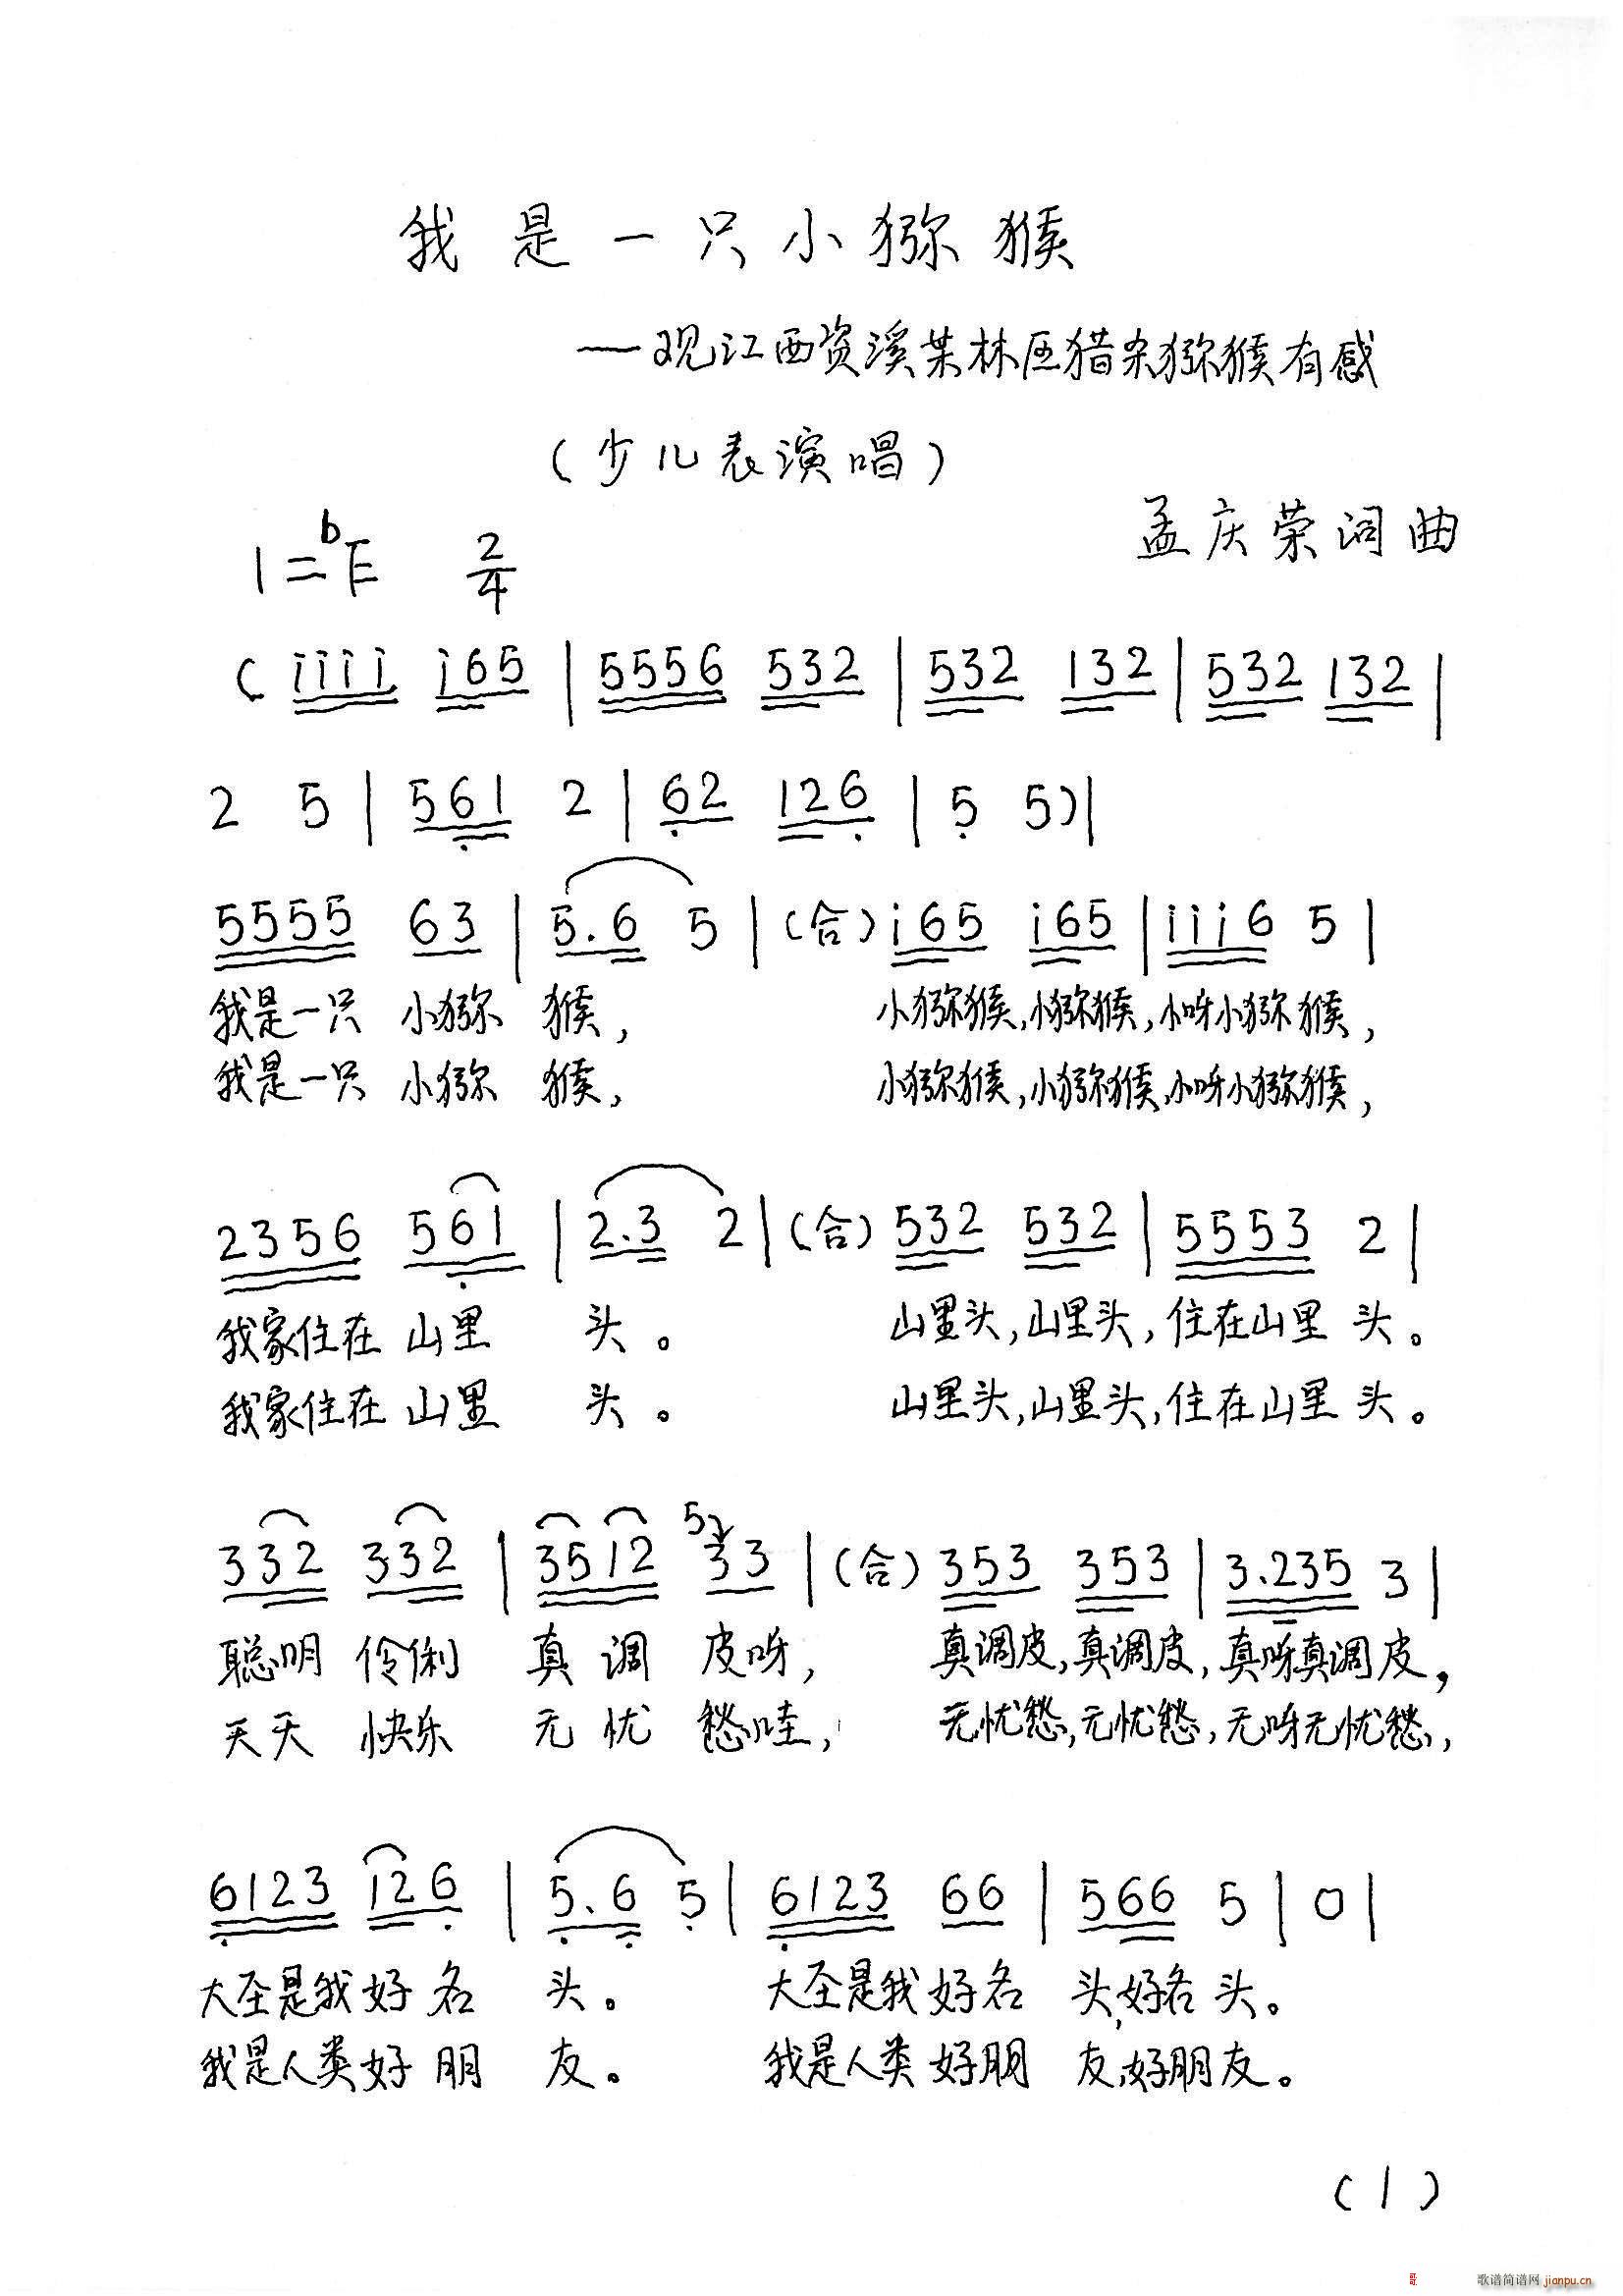 我是一只小猕猴
——观江西资溪某林区猎杀猕猴有感
(少儿表演唱)
孟庆荣词曲
1=bE 2/4
( i i i i i 6 5 | 5 5 5 6 5 3 2 | 5 3 2 1 3 2 | 5 3 2 1 3 2 |
2 5 | 5 6 1 2 | 6 2 1 2 6 | 5 5 ) |
5 5 5 5 6 3 | 5 . 6 5 | (合) i 6 5 i 6 5 | i i i 6 5 |
我是一只 小猕 猴, 小猕猴,小猕猴,小呀小猕猴,
我是一只 小猕 猴, 小猕猴,小猕猴,小呀小猕猴,
2 3 5 6 5 6 1 | 2 . 3 2 | (合) 5 3 2 5 3 2 | 5 5 5 3 2 |
我家住在 山里 头。 山里头,山里头,住在山里 头。
我家住在 山里 头。 山里头,山里头,住在山里 头。
3 3 2 3 3 2 | 3 5 1 2 5 3 3 | (合) 3 5 3 3 5 3 | 3 . 2 3 5 3 |
聪明 伶俐 真 调 皮呀, 真调皮,真调皮,真呀真调皮,
天天 快乐 无 忧 愁哇, 无忧愁,无忧愁,无呀无忧愁,
6 1 2 3 1 2 6 | 5 . 6 5 | 6 1 2 3 6 6 | 5 6 6 5 | 0 |
大圣是我好名 头。 大圣是我好名 头,好名头。
我是人类好朋 友。 我是人类好朋 友,好朋友。
(1)
歌谱简谱网 jianpu.cn